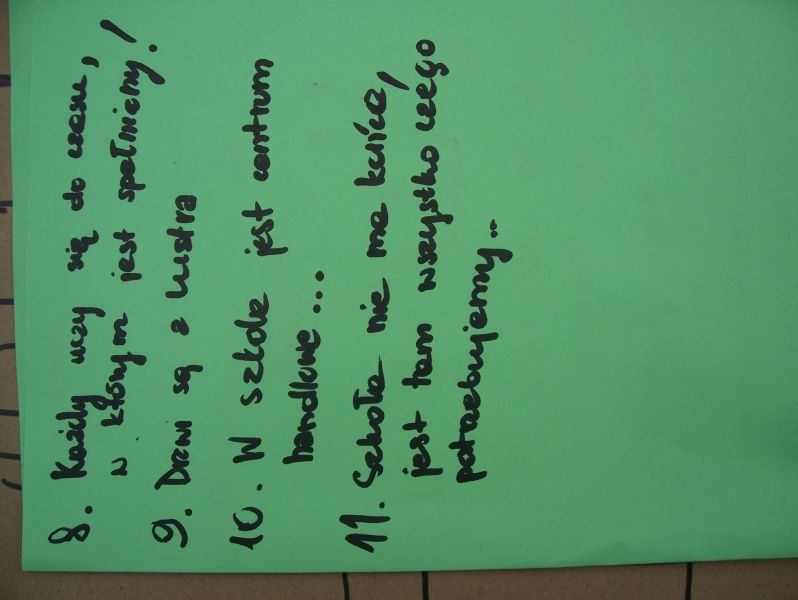 8. Każdy uczy się do czasu,
w którym jest spełniony!
9. Drzwi są z lustra
10. W szkole jest centrum
handlowe...
11. Szkoła nie ma końca,
jest tam wszystko czego
potrzebujemy..